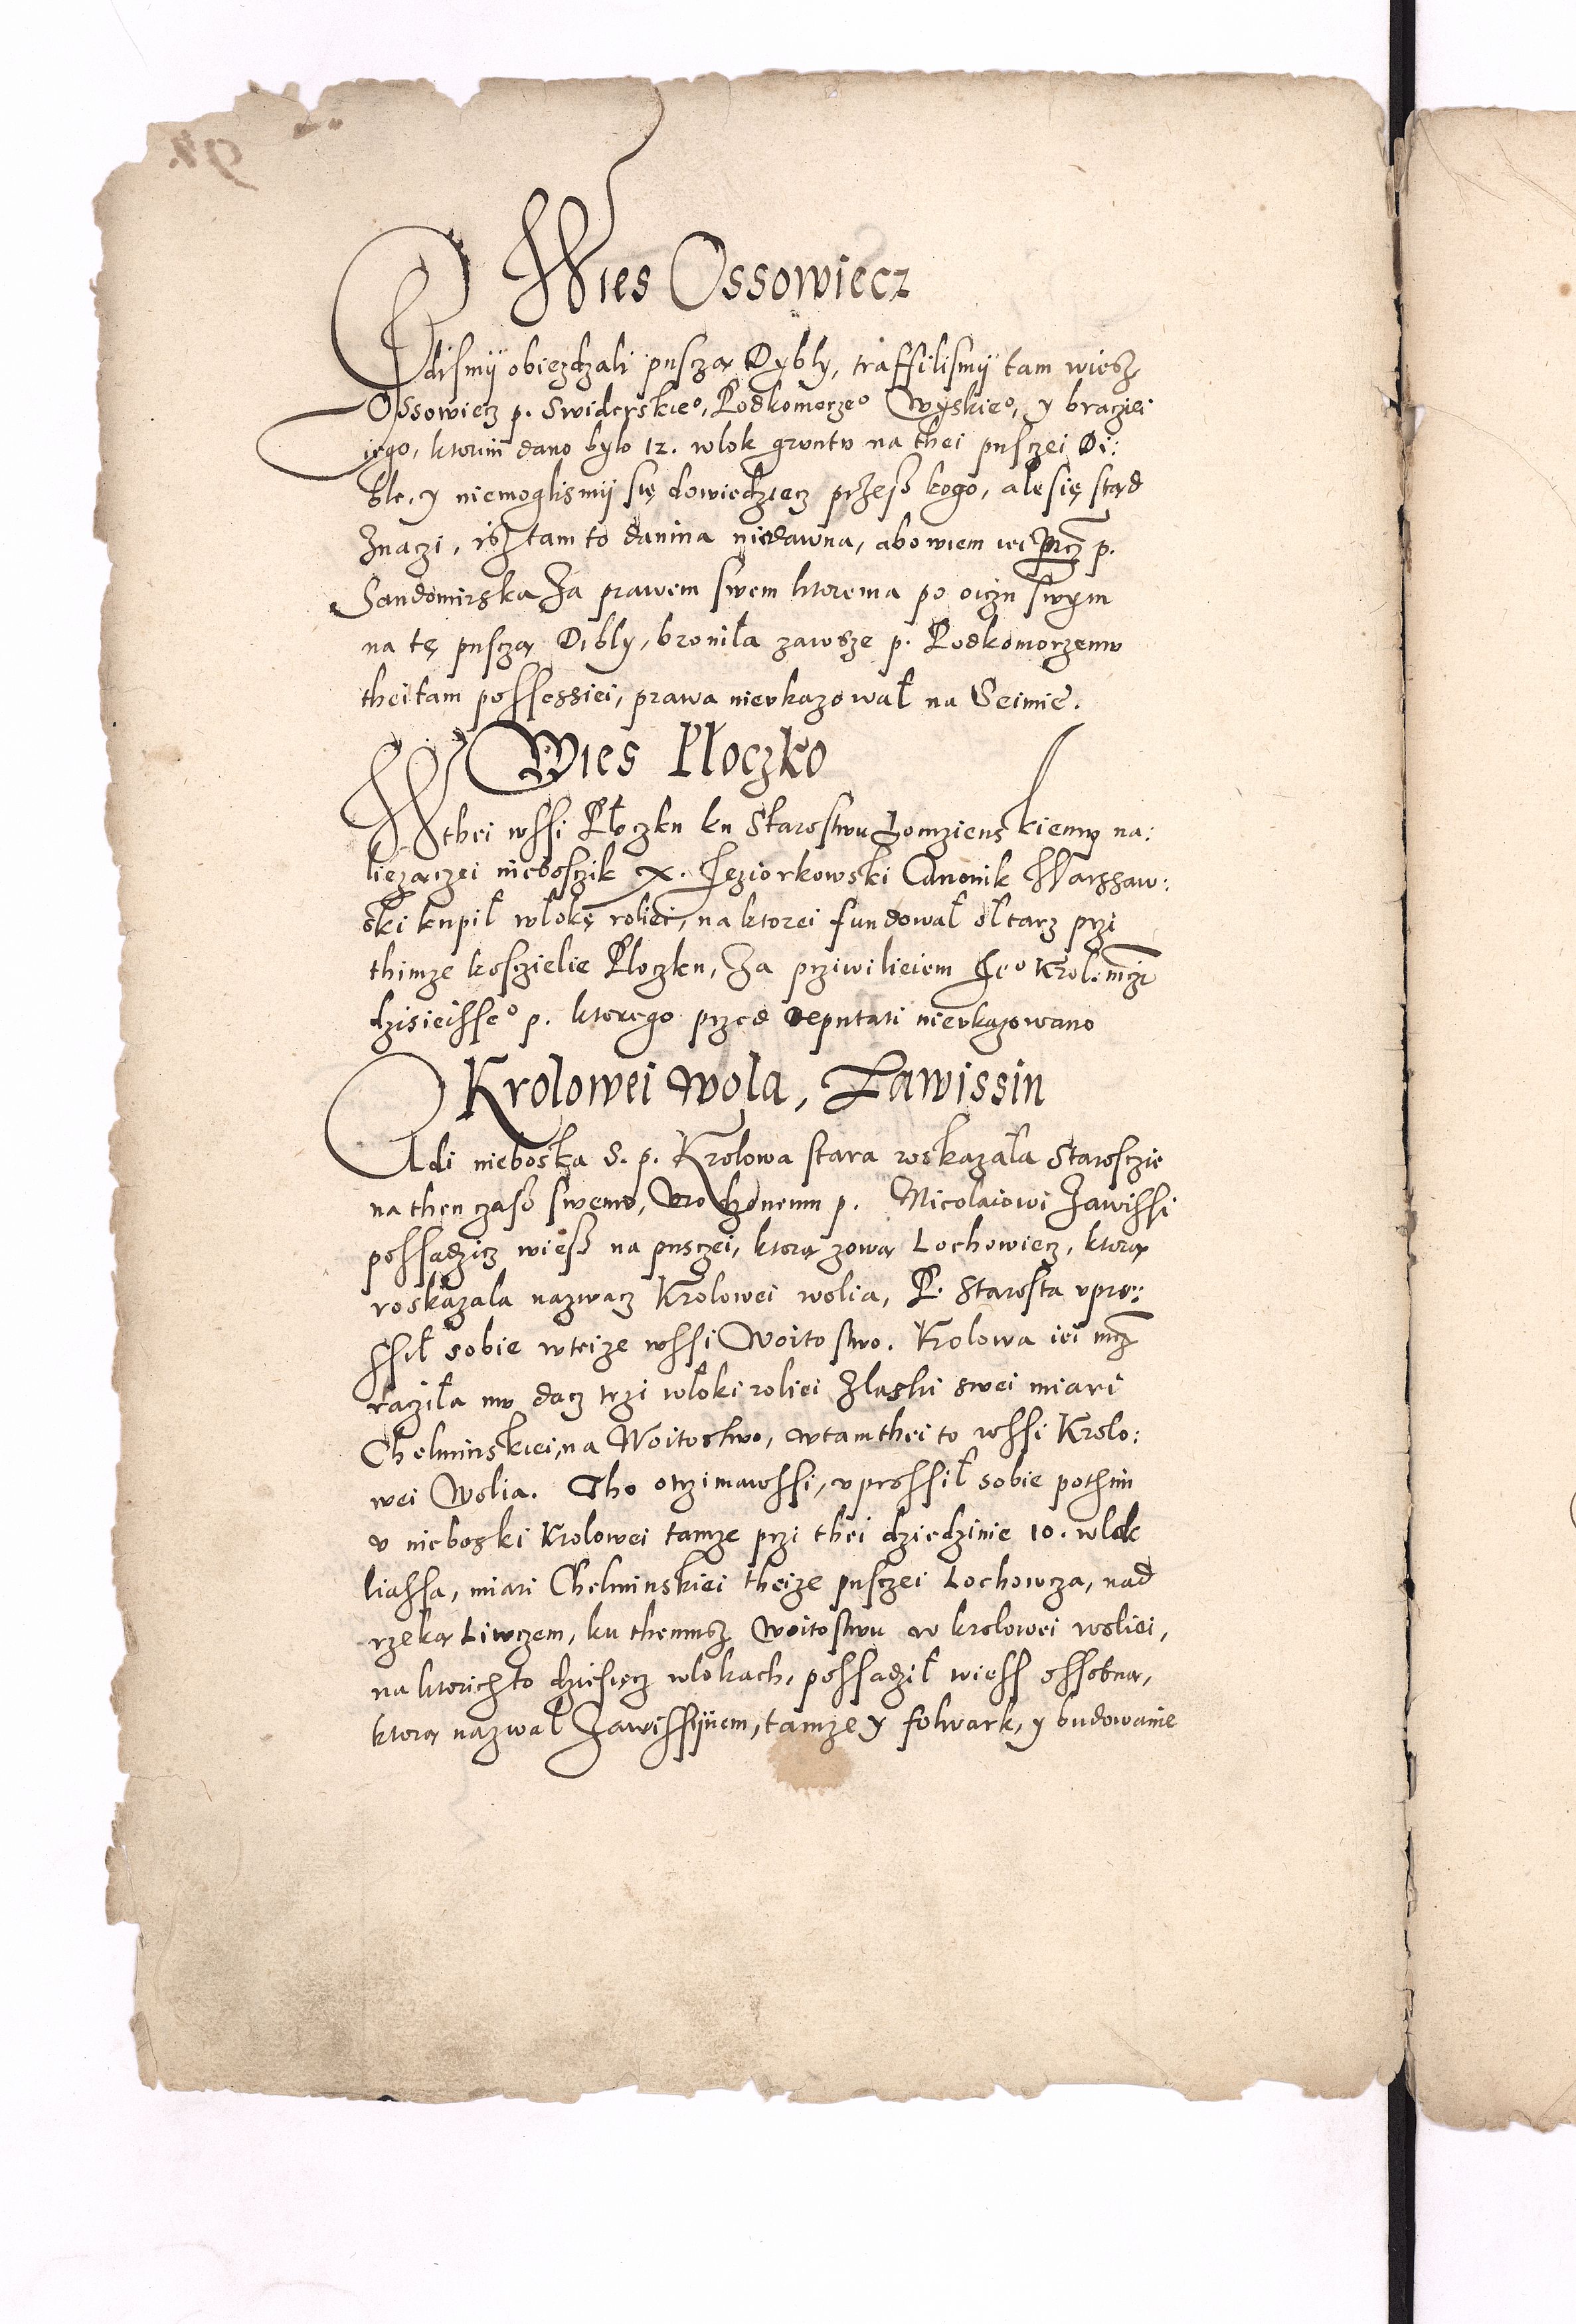 Wies Ossowiecz
Gdismÿ obiezdzali pusczą Dybly, traffilismÿ tam wiesz
Ossowiecz p. Swiderskieo, Podkomorzeo Wyskieo, y bracziei
iego, ktorim dano bylo 12. wlok gruntu na thei pusczei Di:
ble, y niemoglismÿ się dowiedziecz przesz kogo, ale się stąd
znaczi, isz tam to danina niedawna, abowiem iei mcz p.
Sandomirska za prawem swem ktore ma po oiczu swym
na tę pusczą Dibly, broniła zawsze p. Podkomorzemu
thei tam possessiei, prawa nieukazował na Seimie.
Wies Płoczko
W thei wssi Płoczku ku Starostwu Łomzienskiemu na:
liezączei nieboszik X. Jeziorkowski Canonik Warssaw:
ski kupił włokę roliei, na ktorei fundował ołtarz przi
thimze kosczielie Ploczku, za prziwilieiem Jeo Krol. mczi
dzisieisseo p. ktorego przed Deputati nieukazowano
Krolowei Wola, Zawissin
Gdi nieboska S. p. Krolowa stara roskazała Starosczie
na then czass swemu, Urodzonemu p. Micolaiowi Zawissi
possadzicz wiess na pusczei, ktorą zową Lochowiecz, ktorą
roskazala nazwacz Krolowei wolia, P. Starosta upro:
ssił sobie w teize wssi Woitostwo. Krolowa iei mcz
raziła mu dacz trzi wloki roliei z laski swei miari
Chelminskiei, na Woitostwo, w tam thei to wssi Krolo:
wei Wolia. Tho otrzimawssi, uprossił sobie pothim
u nieboski Krolowei tamze przi thei dziedzinie 10. wlok
liassa, miari Chelminskiei theize pusczei Lochowcza, nad
rzeką Liwczem, ku themusz Woitostwu w krolowei woliei,
na ktorich to dziesięcz wlokach, possadził wiess ossobną,
ktorą nazwał Zawissÿnem, tamze y folwark, y budowanie